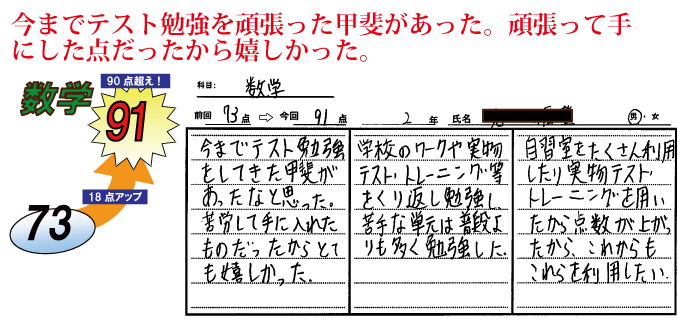 今までテスト勉強を頑張った甲斐があった。頑張って手
にした点だったから嬉しかった。
90点超え!
数学
91
18点アップ
73
科目: 数学
前回 73点 ⇨ 今回 91点 2年 氏名 男・女
今までテスト勉強
をしてきた甲斐が
あったなと思った。
苦労して手に入れた
ものだったからとて
も嬉しかった.
学校のワークや実物
テスト・トレーニング等
をくり返し勉強し.
苦手な単元は普段よ
りも多く勉強した.
自習室をたくさん利用
したり実物テスト
トレーニングを用い
たから点数が上がっ
たから、これからも
これらを利用したい.